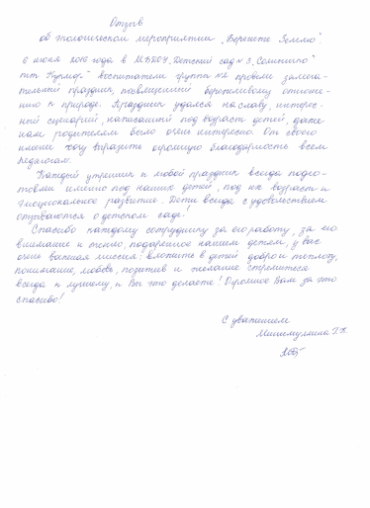 Отзыв
об экологическом мероприятии „Берегите Землю"
6 июня 2016 года в МБДОУ „Детский сад № 3 „Солнышко"
воспитатели групп провели замеча-
тельный праздник, посвященный бережливому отноше-
нию к природе. Праздник удался на славу, интерес-
ный сценарий, написанный под возраст детей, даже
нам родителям было очень интересно. От своего
имени хочу выразить огромную благодарность всем
педагогам.
Каждый утренник и любой праздник всегда подго-
товлен именно под наших детей, под их возраст и
эмоциональное развитие. Дети всегда с удовольствием
отзываются о детском саде!
Спасибо каждому сотруднику за его работу, за его
внимание и тепло, подаренное нашим детям, у вас
очень важная миссия: вложить в детей добро и теплоту,
понимание, любовь, позитив и желание стремиться
всегда к лучшему, и Вы это делаете! Огромное Вам за это
спасибо!
С уважением